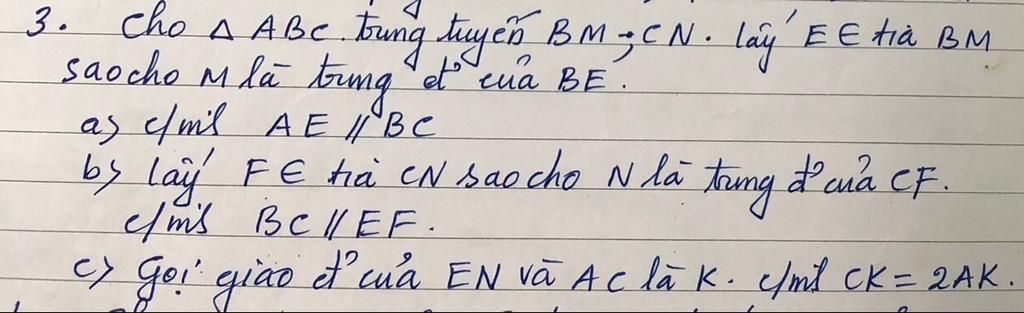 3. Cho △ ABC. trung tuyến BM; CN. lấy E ∈ tia BM
sao cho M là trung đ' của BE.
a) c/m's AE // BC
b) lấy F ∈ tia CN sao cho N là trung đ' của CF.
c/m's BC // EF.
c) Gọi giao đ' của EN và AC là K. c/m's CK = 2AK.